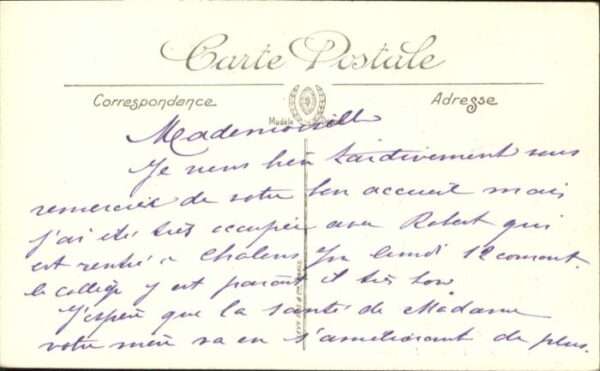 Carte Postale
Correspondance
Adresse
Mademoiselle
Je viens bien tardivement vous
remercier de votre bon accueil mais
j'ai été très occupée avec Robert qui
est rentré à Chalons le lundi 12 courant.
le collège y est parait il très bon
J'espère que la santé de Madame
votre mère va en s'améliorant de plus